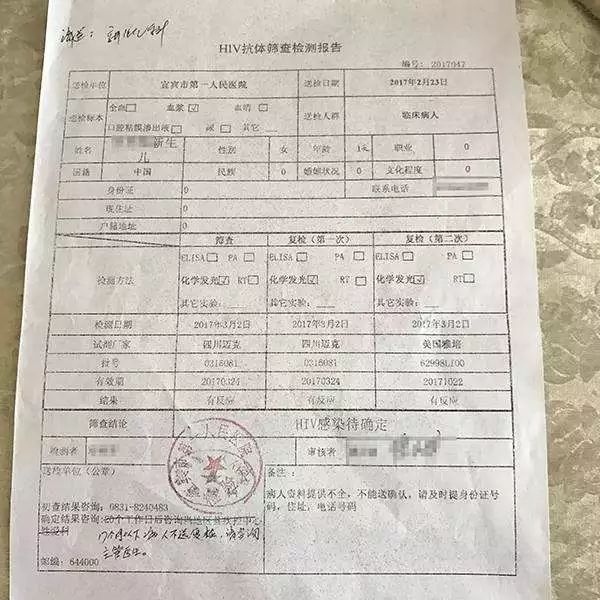 HIV抗体筛查检测报告
编号: 2017047
送检单位 宜宾市第一人民医院 送检日期 2017年2月23日
送检标本 全血□ 血浆☑ 血清□ 送检人群 临床病人
口腔粘膜渗出液□ 尿□ 其它
姓名 新生儿 性别 女 年龄 1天 职业 0
国籍 中国 民族 0 婚姻状况 0 文化程度 0
身份证 0 联系电话
现住址 0
户籍地址 0
筛查 复检(第一次) 复检(第二次)
检测方法 ELISA□ PA□ ELISA□ PA□ ELISA□ PA□
化学发光☑ RT□ 化学发光☑ RT□ 化学发光☑ RT□
其它实验: 其它实验: 其它实验:
检测日期 2017年3月2日 2017年3月2日 2017年3月2日
试剂厂家 四川迈克 四川迈克 美国雅培
批号 0316081 0316081 62998LI00
有效期 20170324 20170324 20171022
结果 有反应 有反应 有反应
筛查结论 HIV感染待确定
检测者 审核者
送检单位(公章) 备注:
病人资料提供不全,不能送确认,请及时提身份证号码,住址,电话号码
初查结果咨询: 0831-8240483
确定结果咨询: 20个工作日后咨询
邮编: 644000